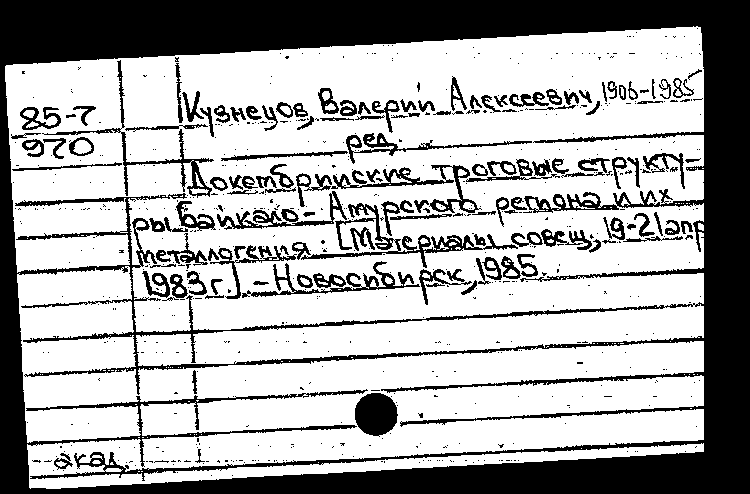 85-7
970
Кузнецов, Валерий Алексеевич, 1906-1985
ред.
Докембрийские троговые структу-
ры Байкало-Амурского региона и их
металлогения: [Материалы совещ., 19-21 апр
1983 г.]. - Новосибирск, 1985.
акад.